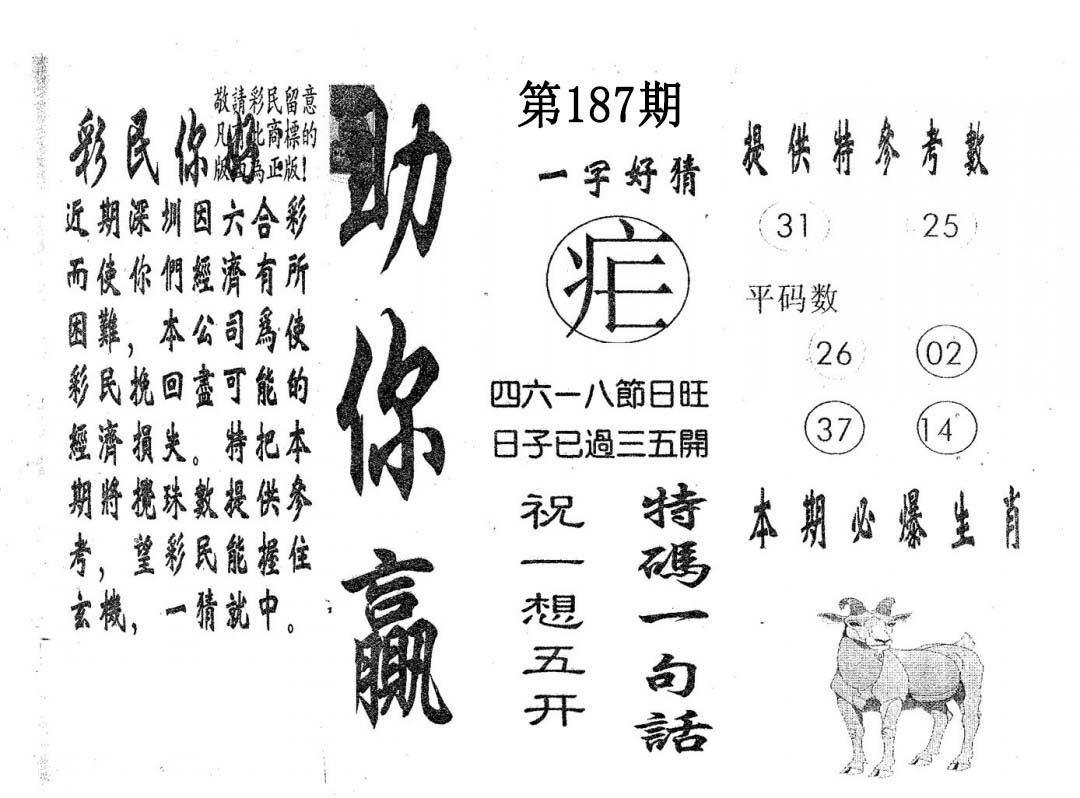 敬請彩民留意
凡有此商標的
版面為正版!
彩民你好
近期深圳因六合彩
而使你們經濟有所
困難，本公司為使
彩民挽回盡可能的
經濟損失。特把本
期將攪珠數提供參
考，望彩民能握住
玄機，一猜就中。
助你贏
第187期
一字好猜
四六一八節日旺
日子已過三五開
特碼一句話
祝一想五开
提供特參考數
31 25
平码数
26 02
37 14
本期必爆生肖